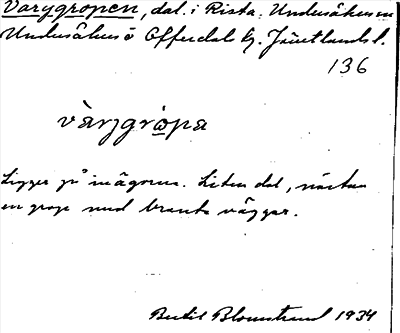 Varggropen, dal. i Rista. Undersåkers sn
Undersåkers o Offerdals tg. Jämtlands l.
136
vàrggròpa
Ligger på inägorna. Liten dal, nästan
en grop med branta väggar.
Bertil Blomstrand 1934